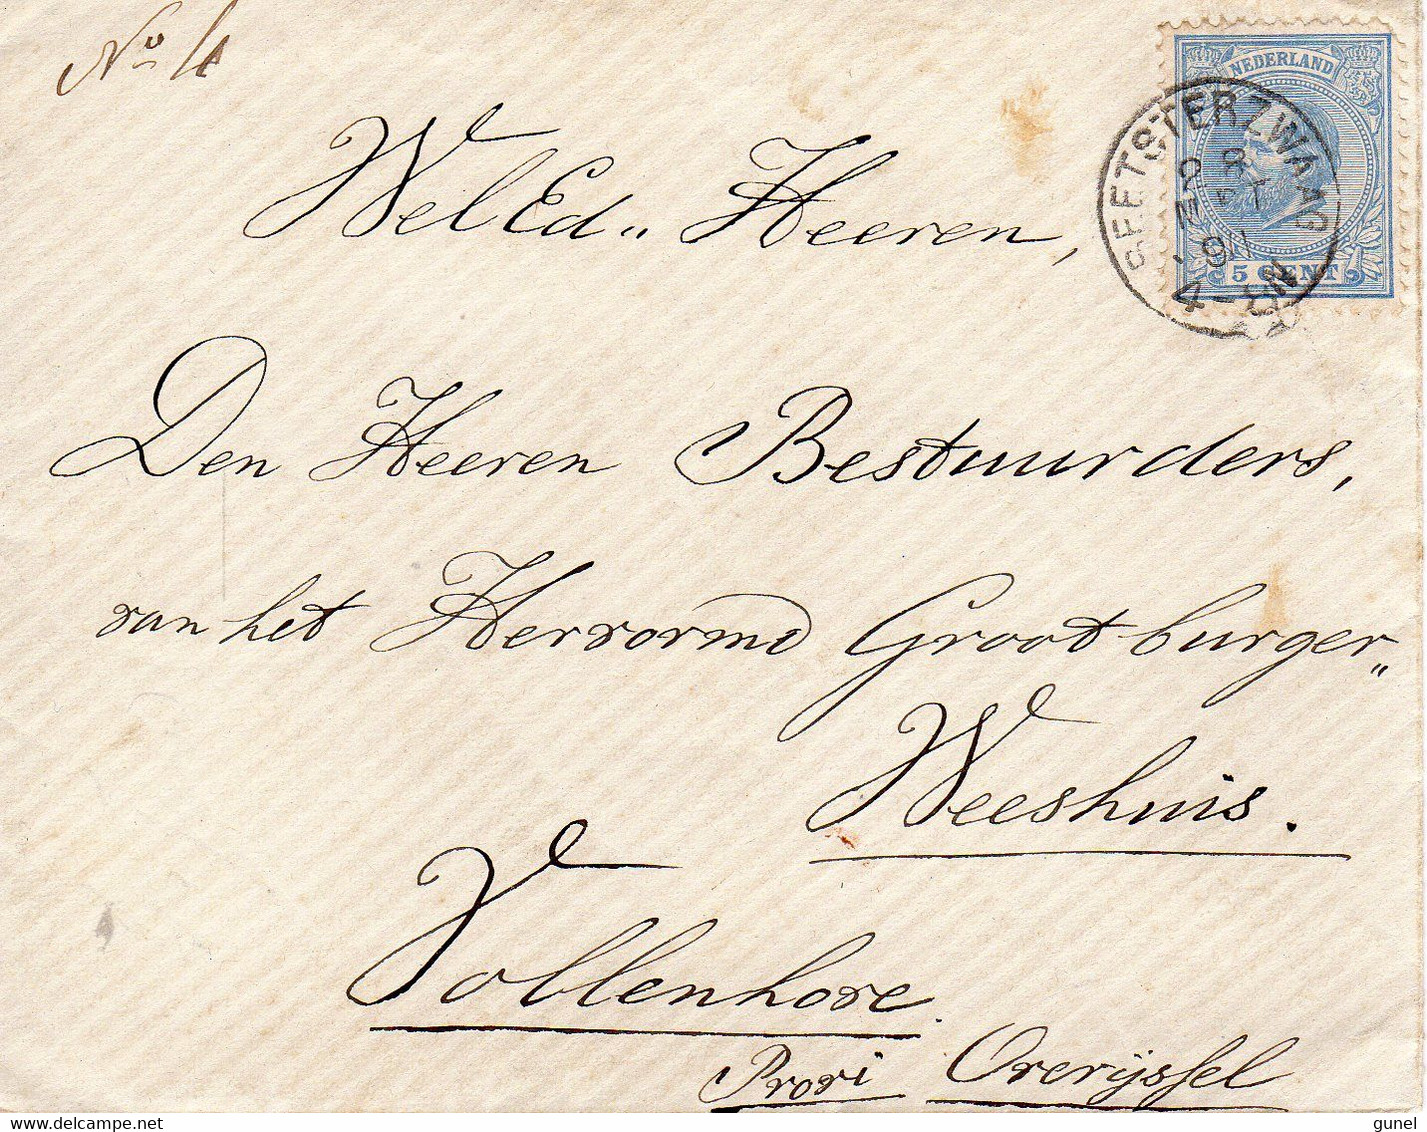 No 4
NEDERLAND
5 CENT
BEETSTERZWAAG
28 MRT
91
4-8N
WelEd„ Heeren,
Den Heeren Bestuurders,
van het Hervormd Grootburger„
Weeshuis.
Vollenhove.
Provi Overijssel
gunel